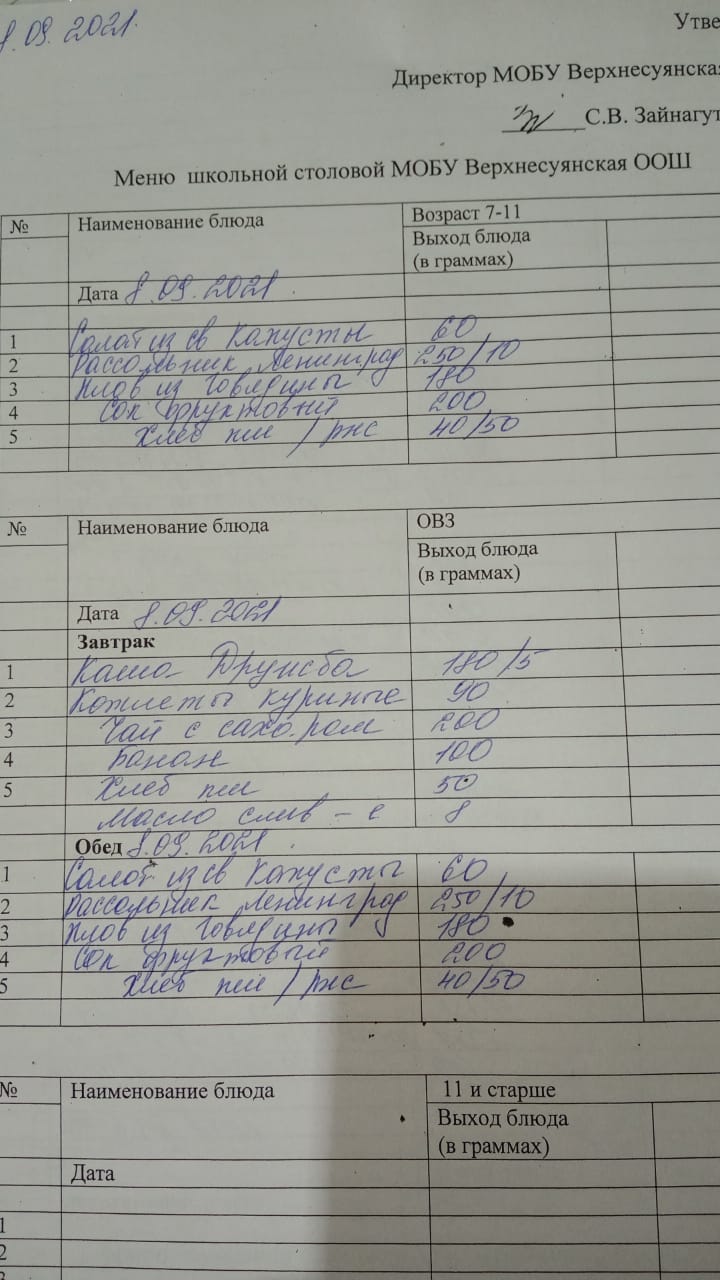 8.09.2021.
Утве
Директор МОБУ Верхнесуянская
С.В. Зайнагут
Меню школьной столовой МОБУ Верхнесуянская ООШ
№ Наименование блюда Возраст 7-11
Выход блюда
(в граммах)
Дата 8.09.2021
1 Салат из св капусты 60
2 Рассольник Ленинград 250/10
3 Плов из говядины 180
4 Сок фруктовый 200
5 Хлеб пш / ржс 40/50
№ Наименование блюда ОВЗ
Выход блюда
(в граммах)
Дата 8.09.2021
Завтрак
1 Каша Дружба 180/5
2 Котлеты куриные 90
3 Чай с сахаром 200
4 Банан 100
5 Хлеб пш 50
Масло слив – е 8
Обед 8.09.2021
1 Салат из св капусты 60
2 Рассольник Ленинград 250/10
3 Плов из говядины 180
4 Сок фруктовый 200
5 Хлеб пш / ржс 40/50
№ Наименование блюда 11 и старше
Выход блюда
(в граммах)
Дата
1
2
3